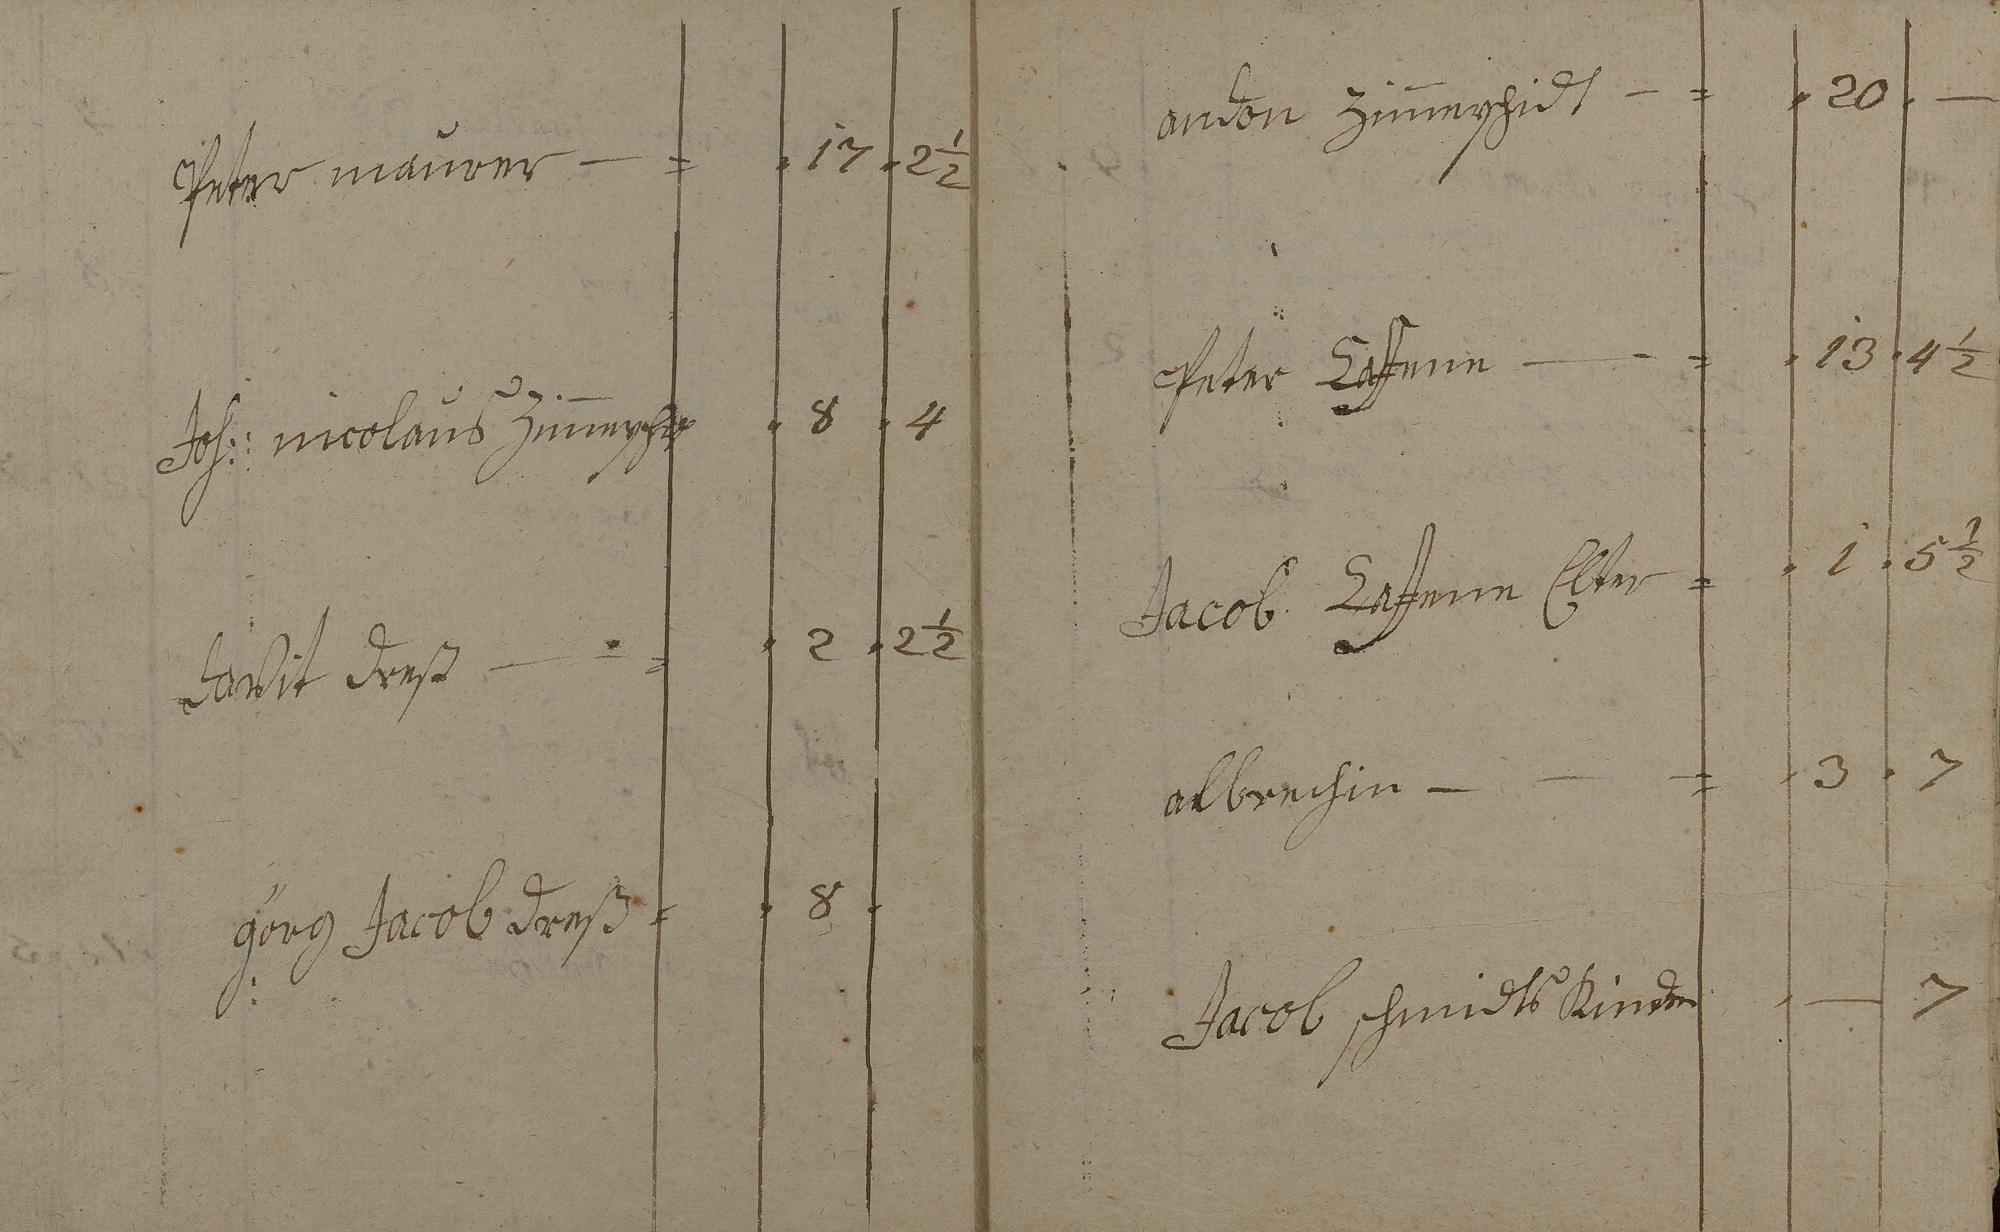 Peter maurer — = . 17 . 2½
Joh:: nicolaus Zim̄erschit . 8 . 4
davit dreß — = . 2 . 2½
görg Jacob dreß = . 8 .
andon Zim̄erschidt — = . 20 . —
Peter Laffenn — - = . 13 . 4½
Jacob Laffenn Elter = . 1 . 5½
albrechin — — = . 3 . 7
Jacob schmidts Kinder . — 7